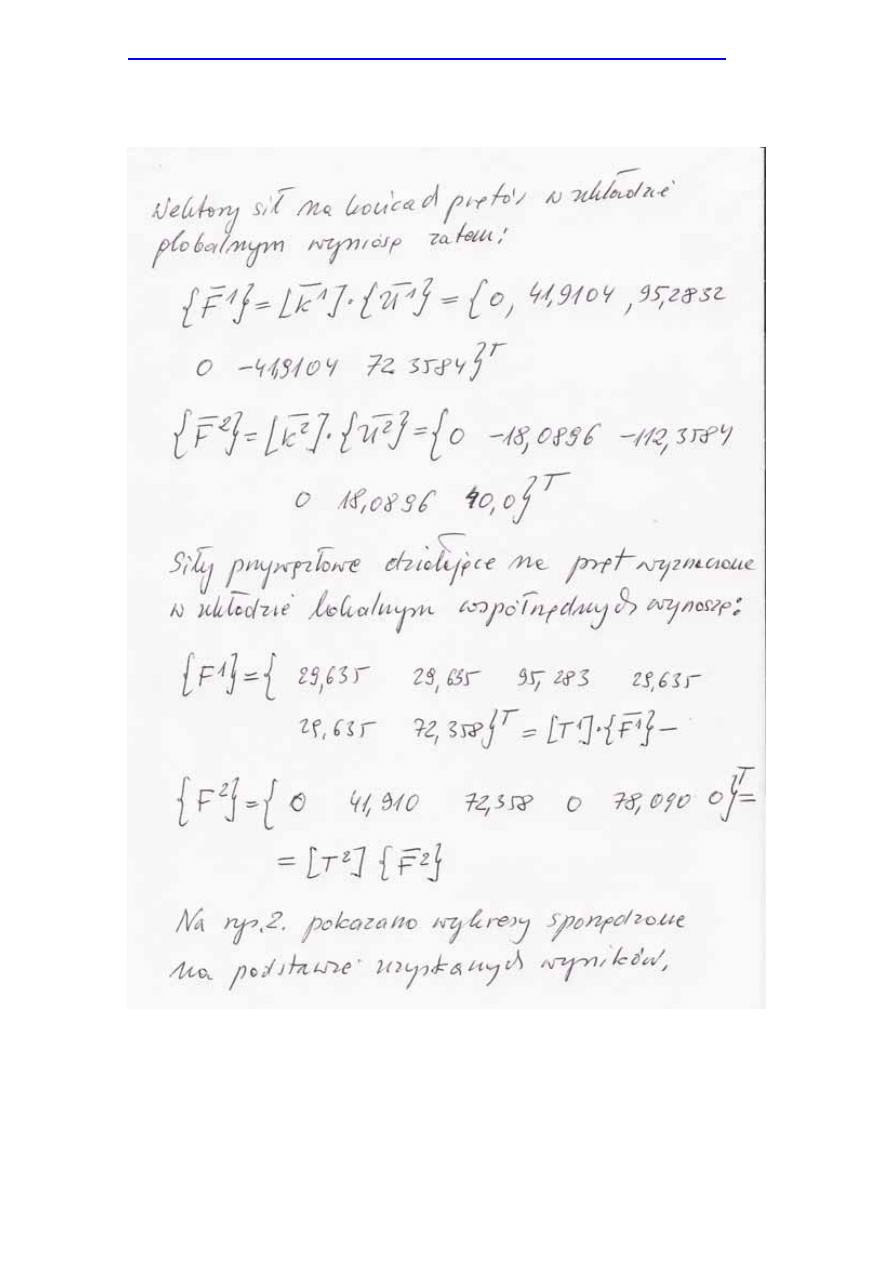 Wektory sił na końcach prętów w układzie
globalnym wyniosą zatem:
{F̄¹}=[k̄¹]·{ū¹}={0, 41,9104 ,95,2832
0 -41,9104 72 3584}ᵀ
{F̄²}=[k̄²]·{ū²}={0 -18,0896 -112,3584
0 18,0896 40,0}ᵀ
Siły przywęzłowe działające na pręt wyznaczone
w układzie lokalnym współrzędnych wynoszą:
{F¹}={ 29,635 29,635 95,283 29,635
29,635 72,358}ᵀ = [T¹]·{F̄¹}—
{F²}={ 0 41,910 72,358 0 78,090 0}ᵀ=
= [T²] {F̄²}
Na rys.2. pokazano wykresy sporządzone
na podstawie uzyskanych wyników,